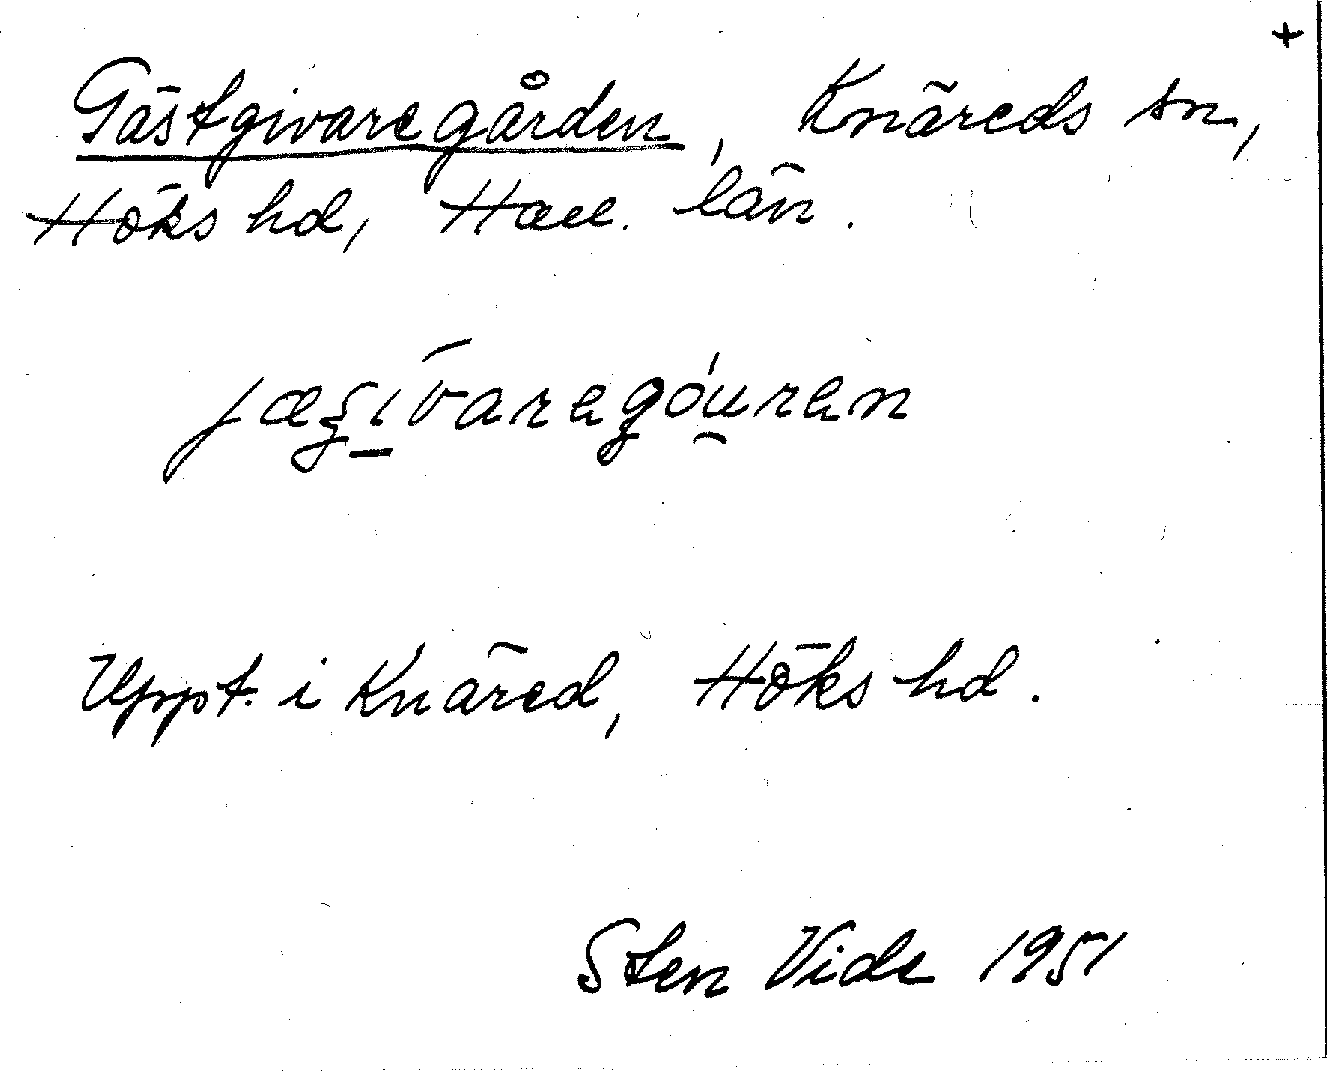 +
Gästgivaregården, Knäreds sn,
Höks hd, Hall. län.
Uppt. i Knäred, Höks hd.
Sten Vide 1951